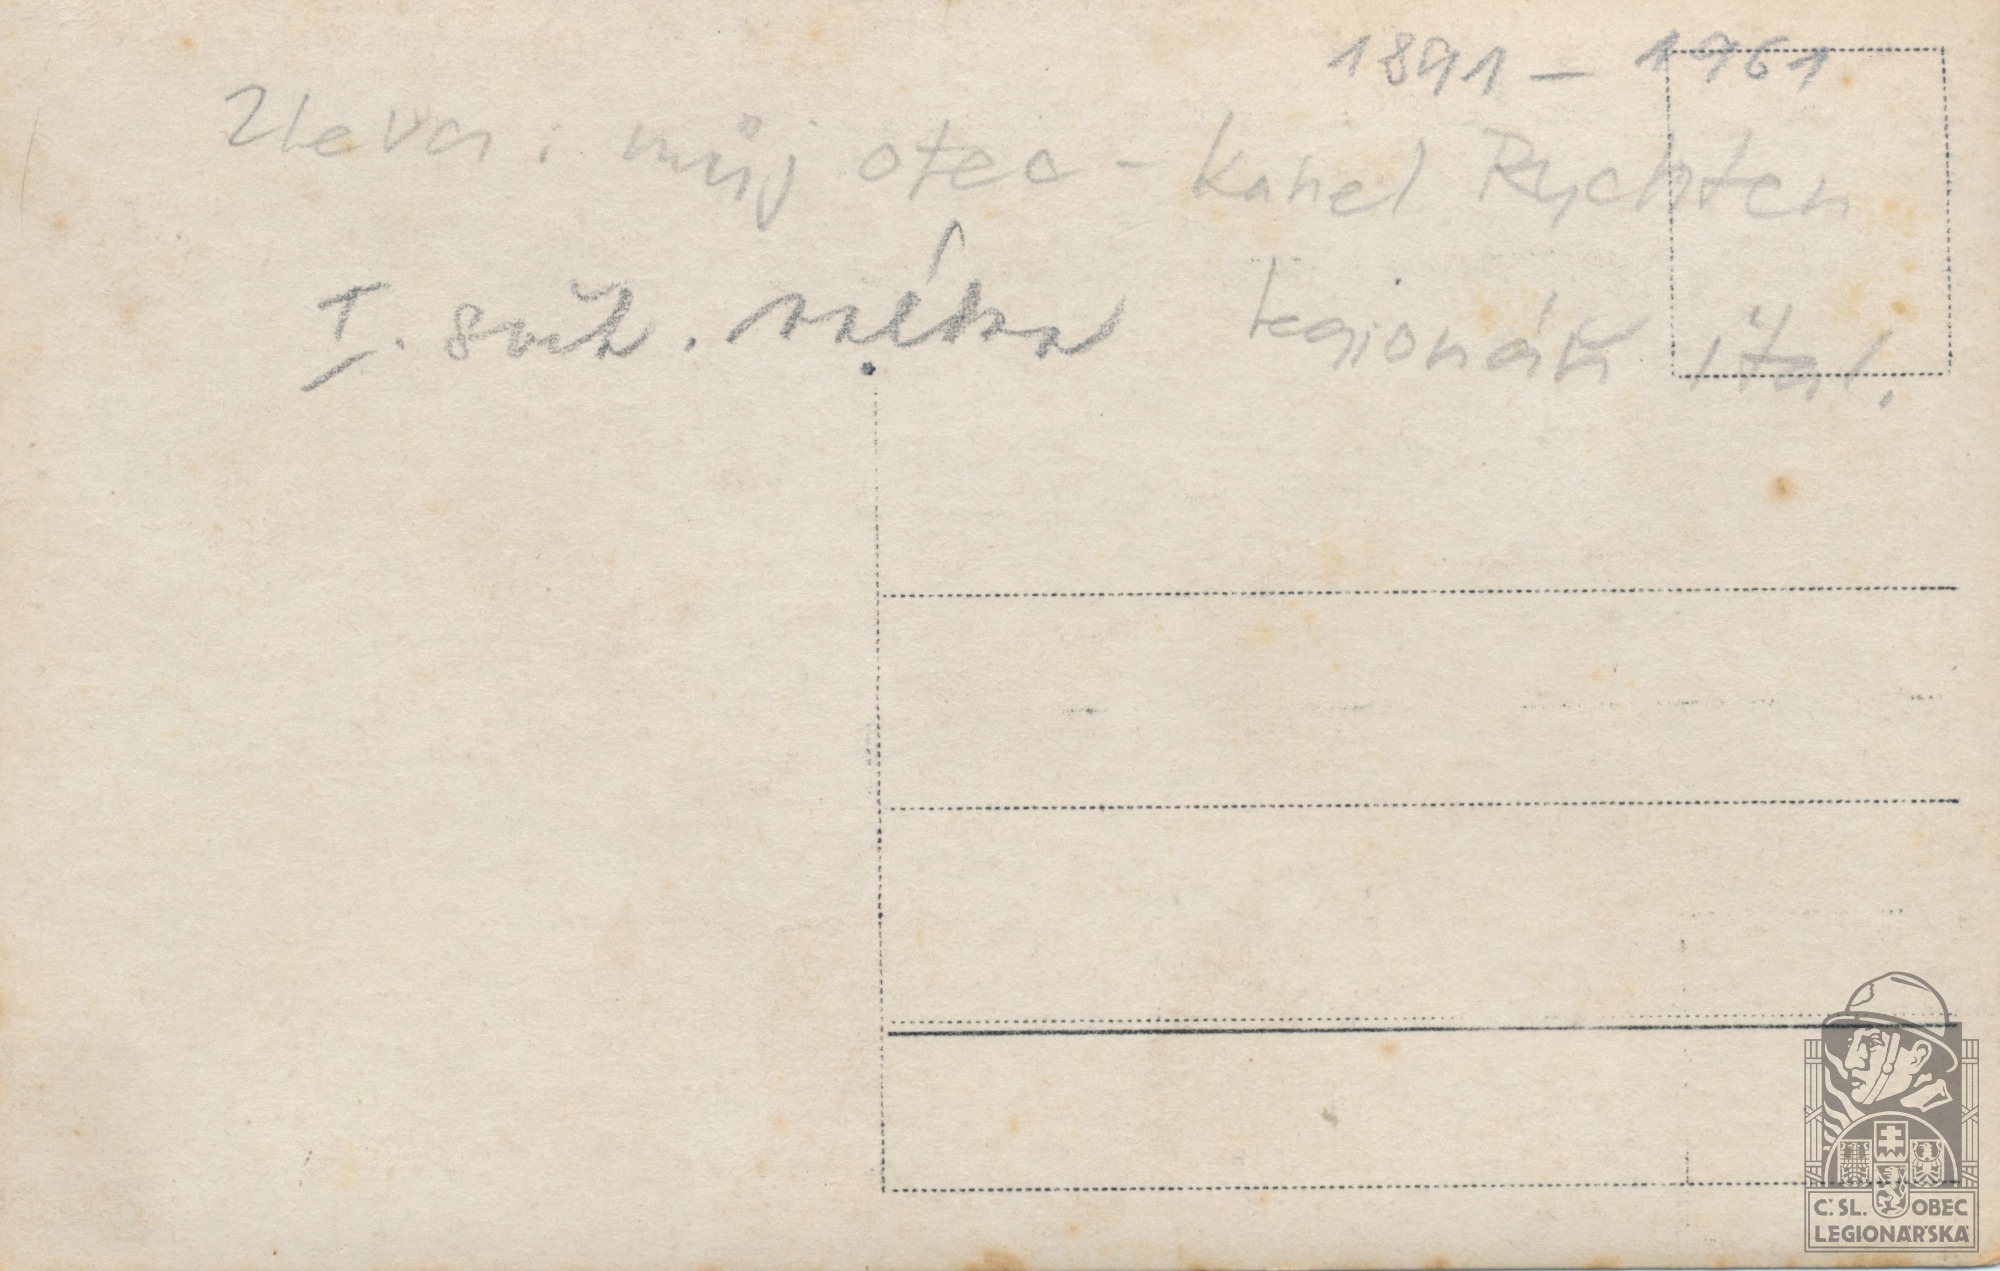 1891 – 1961
Zleva: můj otec – Karel Rychter
I. svět. válka legionář ital.
Č. SL. OBEC
LEGIONÁŘSKÁ